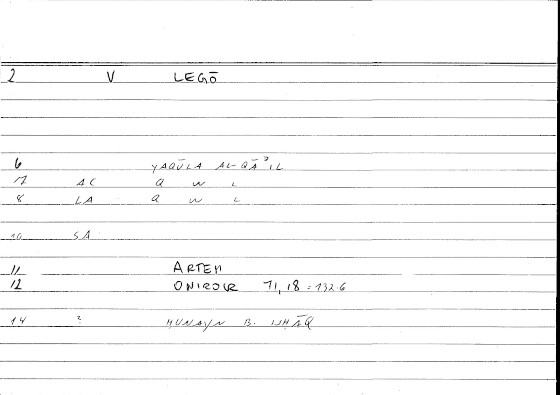 2 V LEGŌ
6 YAQŪLA AL-QĀʾIL
7 AC Q W L
8 LA Q W L
10 SA
11 ARTEM
12 ONIROCR 71, 18 = 132.6
14 ? HUNAYN B. ISHĀQ